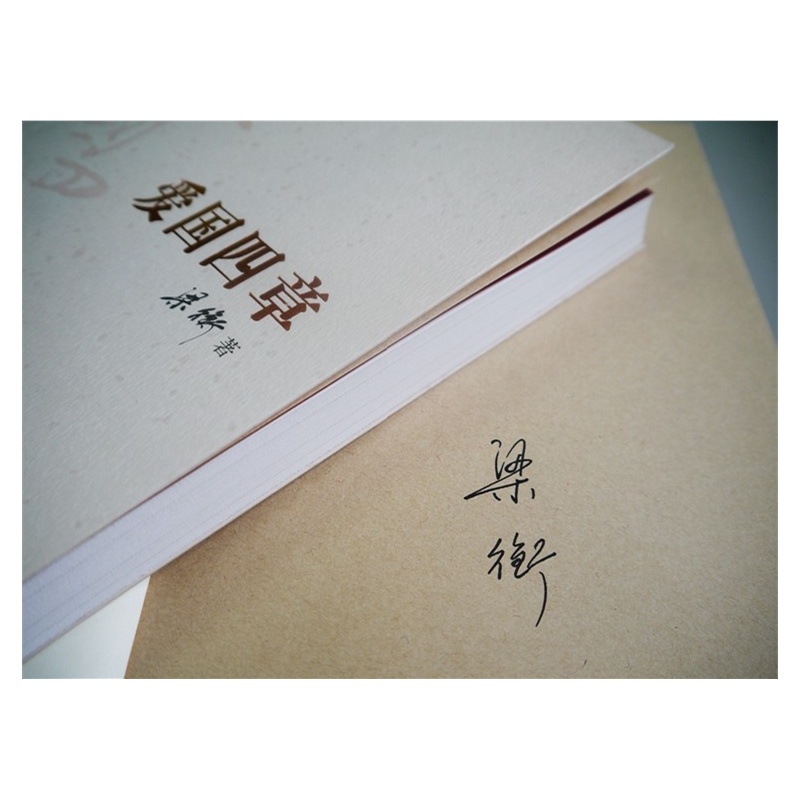 爱国四章
梁衡 著
梁
衡